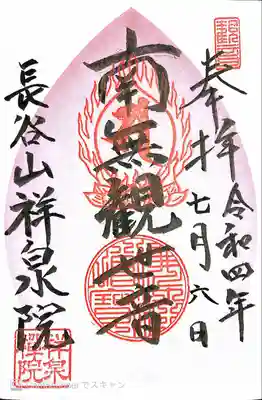 奉拝
令和四年
七月六日
南無観世音
長谷山祥泉院
でスキャン